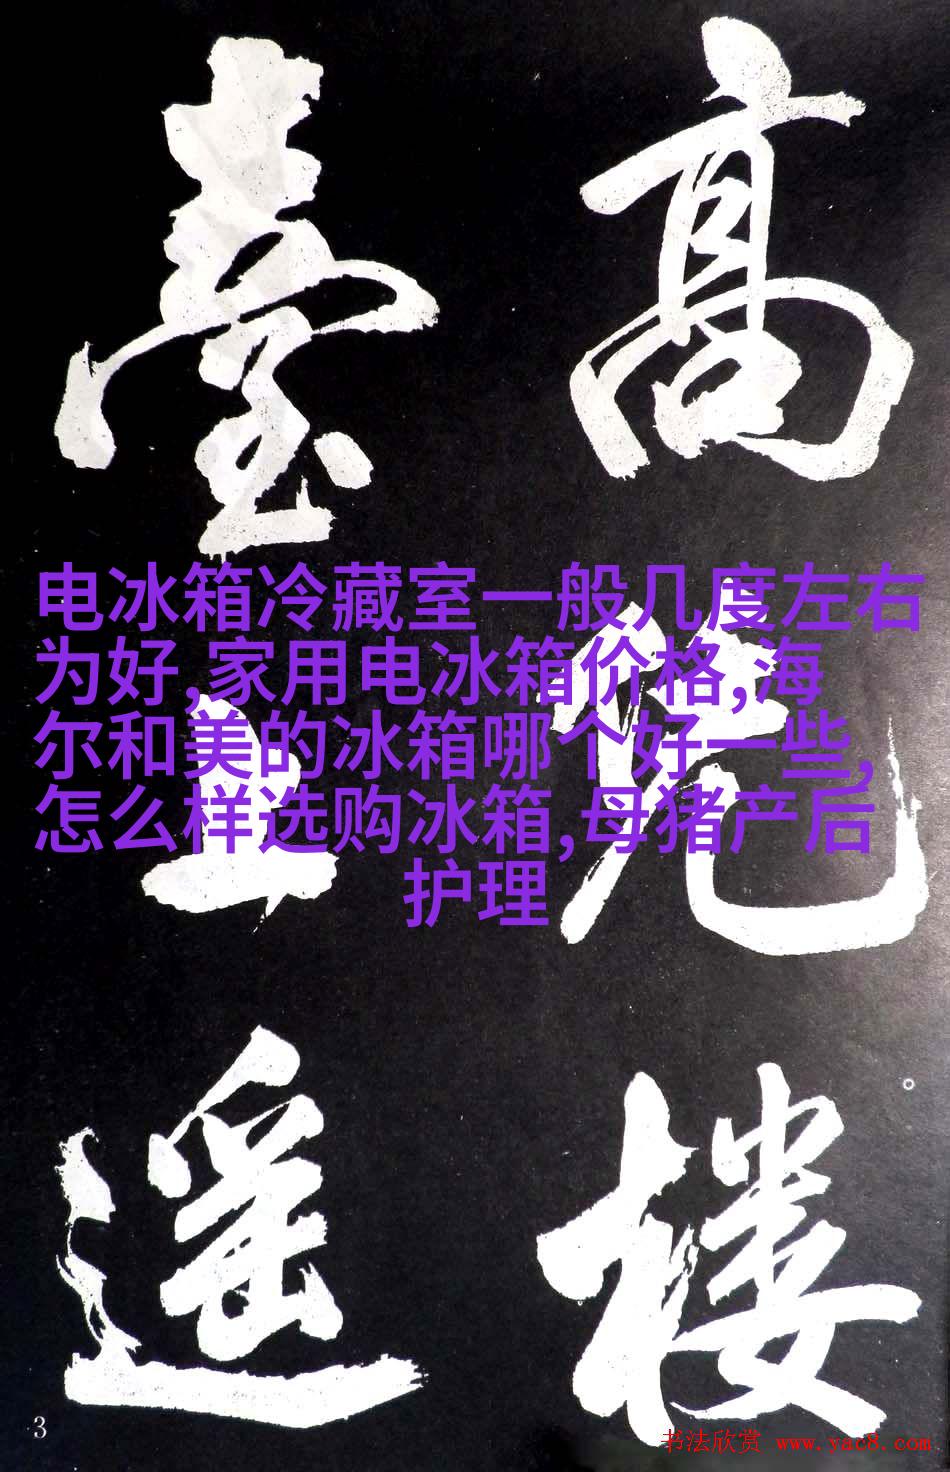 高凭楼
臺上遥
电冰箱冷藏室一般几度左右
为好,家用电冰箱价格,海
尔和美的冰箱哪个好一些,
怎么样选购冰箱,母猪产后
护理
3
书法欣赏 www.yac8.com